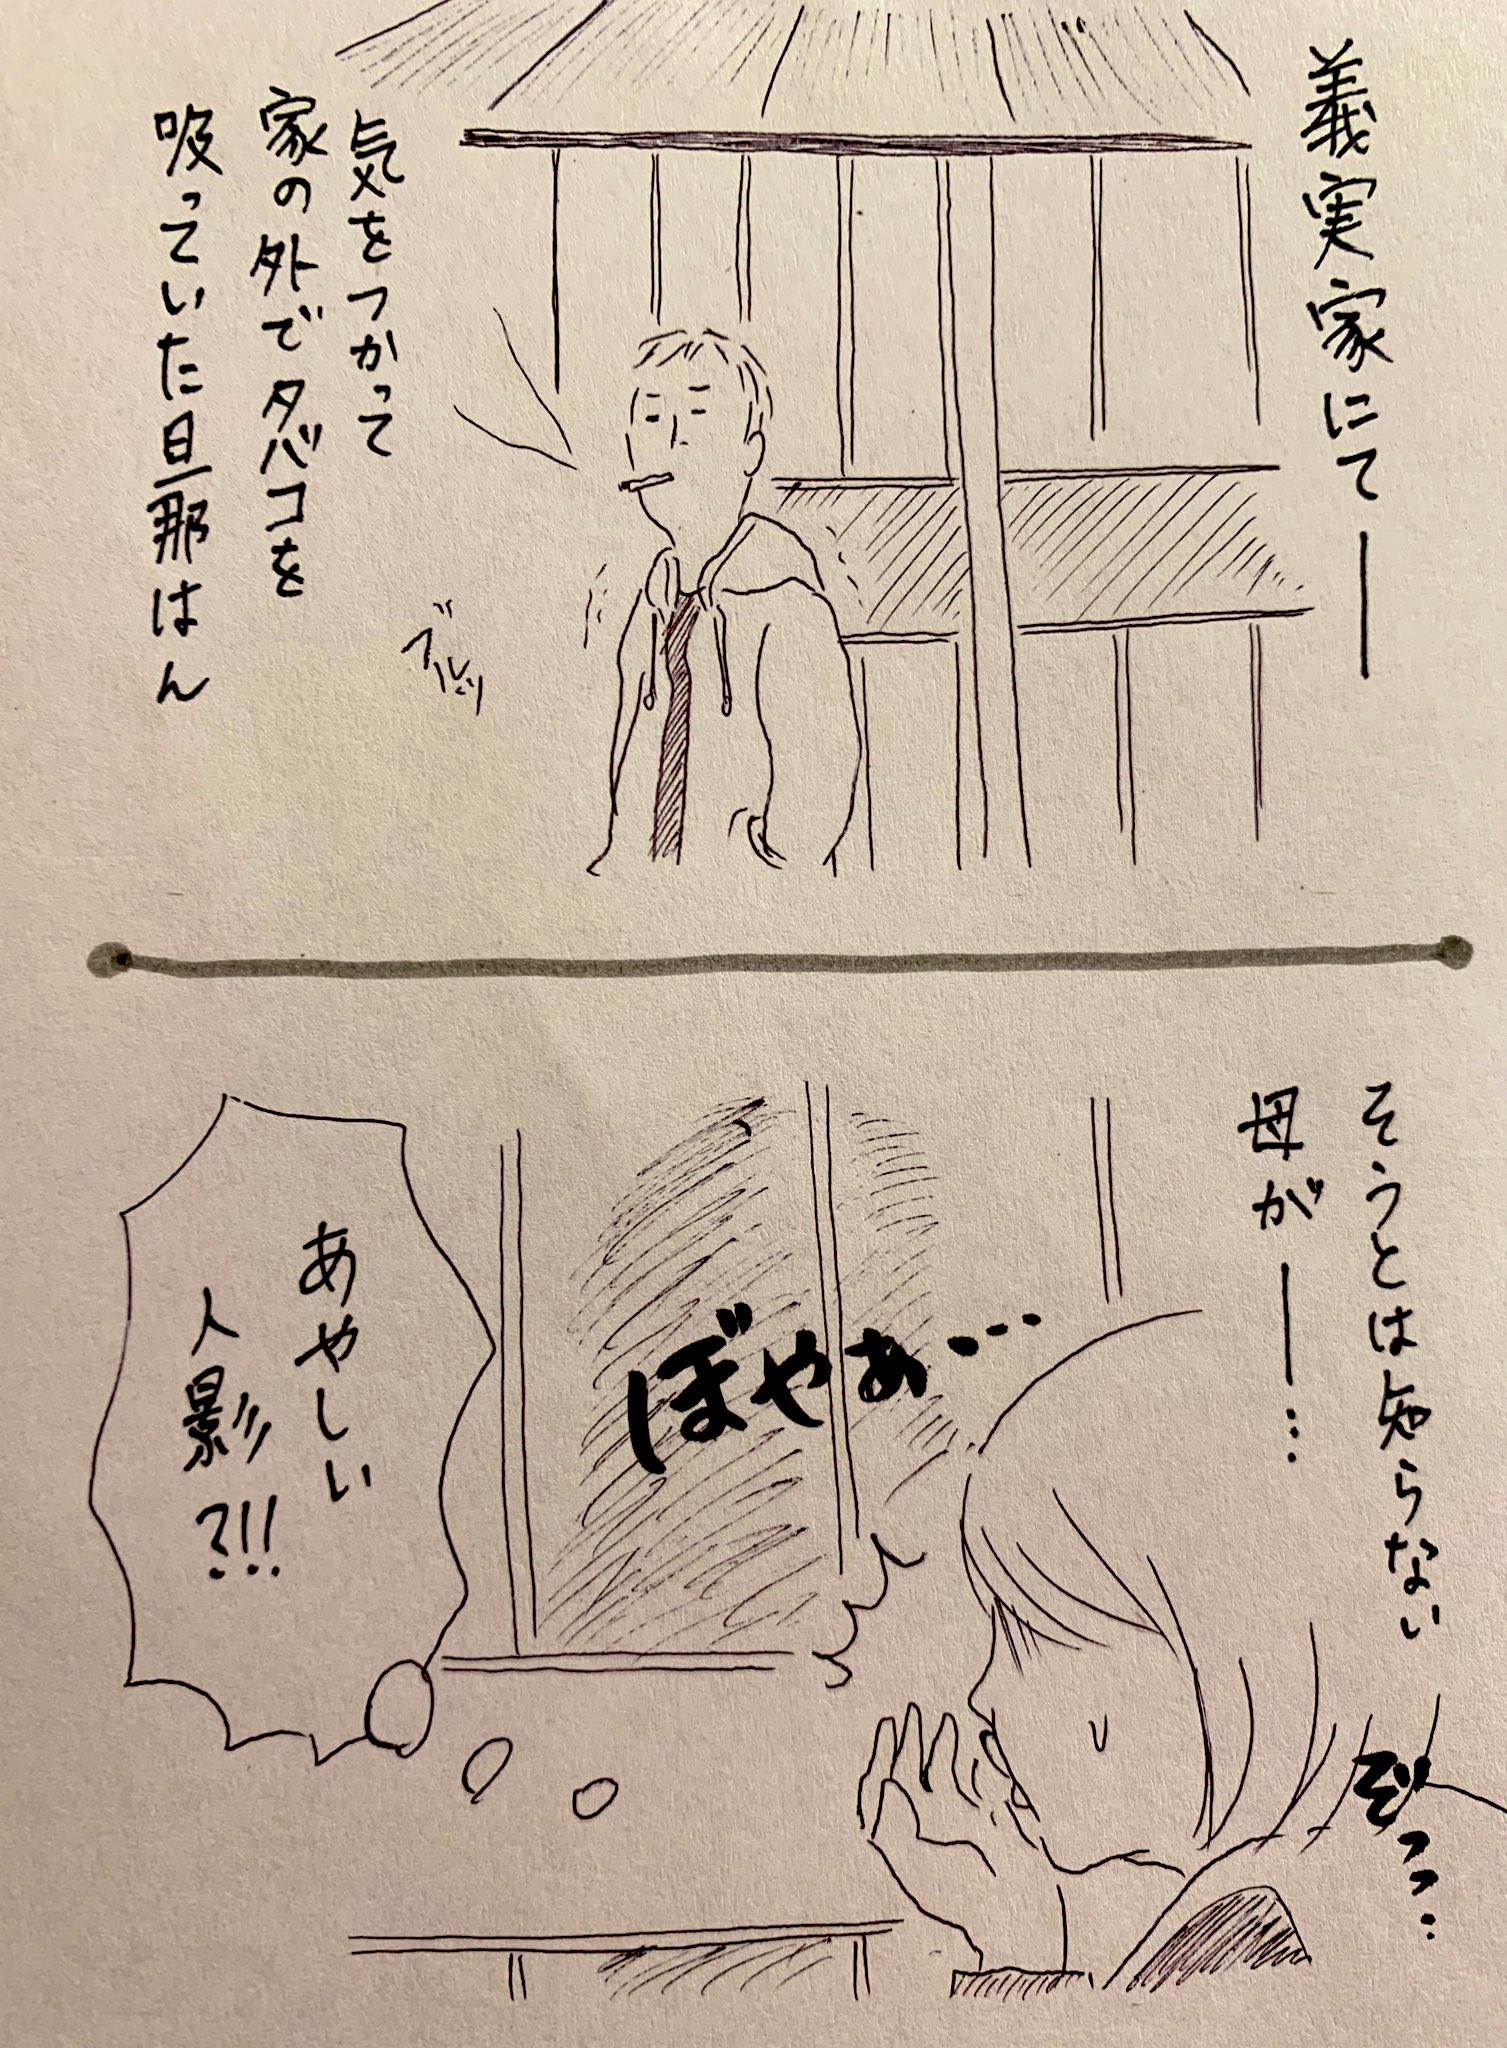 義実家にて――
気をつかって
家の外でタバコを
吸っていた旦那はん
ブルッ
そうとは知らない
母が――…
ぼやぁ…
ぞっっ…
あやしい
人影?!!